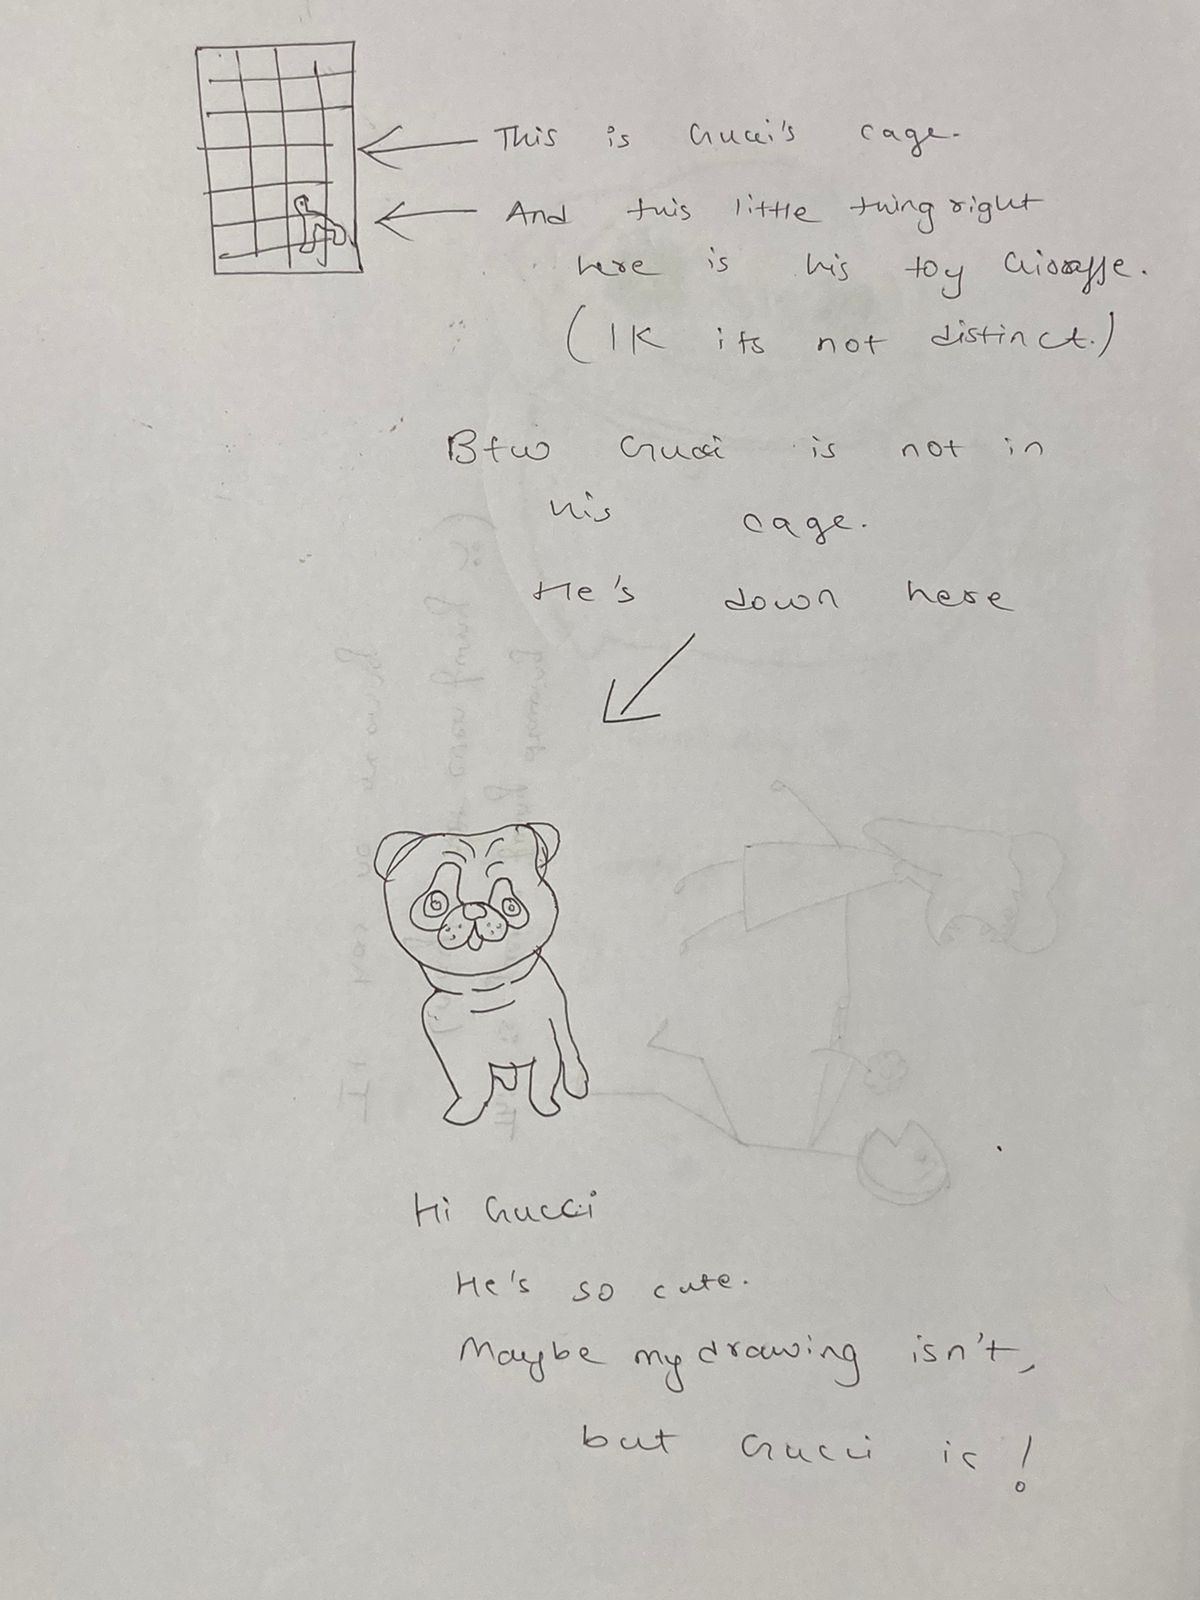 This is Gucci's cage.
And this little thing right
here is his toy Giraffe.
(IK its not distinct.)
Btw Gucci is not in
his cage.
He's down here
Hi Gucci
He's so cute.
Maybe my drawing isn't,
but Gucci is!